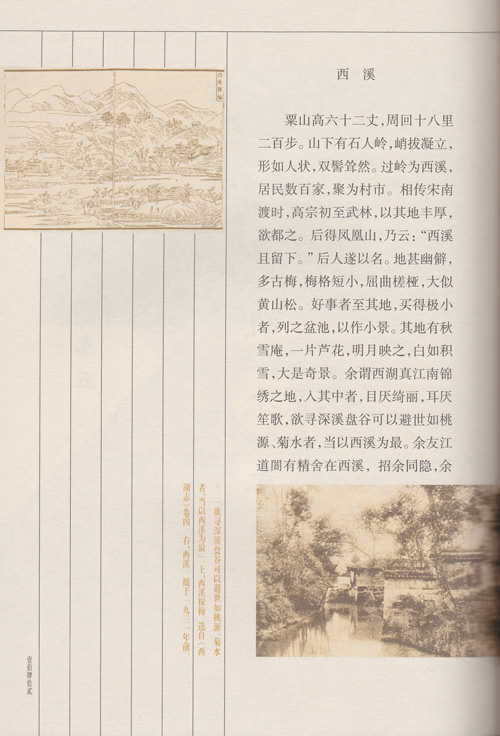 西溪
粟山高六十二丈，周回十八里
二百步。山下有石人岭，峭拔凝立，
形如人状，双髻耸然。过岭为西溪，
居民数百家，聚为村市。相传宋南
渡时，高宗初至武林，以其地丰厚，
欲都之。后得凤凰山，乃云：“西溪
且留下。”后人遂以名。地甚幽僻，
多古梅，梅格短小，屈曲槎桠，大似
黄山松。好事者至其地，买得极小
者，列之盆池，以作小景。其地有秋
雪庵，一片芦花，明月映之，白如积
雪，大是奇景。余谓西湖真江南锦
绣之地，入其中者，目厌绮丽，耳厌
笙歌，欲寻深溪盘谷可以避世如桃
源、菊水者，当以西溪为最。余友江
道闇有精舍在西溪，招余同隐，余
西溪探梅
「欲寻深溪盘谷可以避世如桃源、菊水
者，当以西溪为最」上：西溪探梅 选自《西
湖志》卷四 右：西溪 摄于一九三一年前。
壹佰肆拾贰